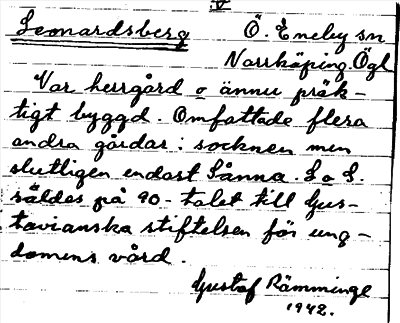 Leonardsberg Ö. Eneby sn
Norrköping. Ögl
Var herrgård o ännu präk-
tigt byggd. Omfattade flera
andra gårdar i socknen men
slutligen endast Sånna. L o S.
såldes på 90-talet till Gus-
tavianska stiftelsen för ung-
domens vård.
Gustaf Rämminge
1942.